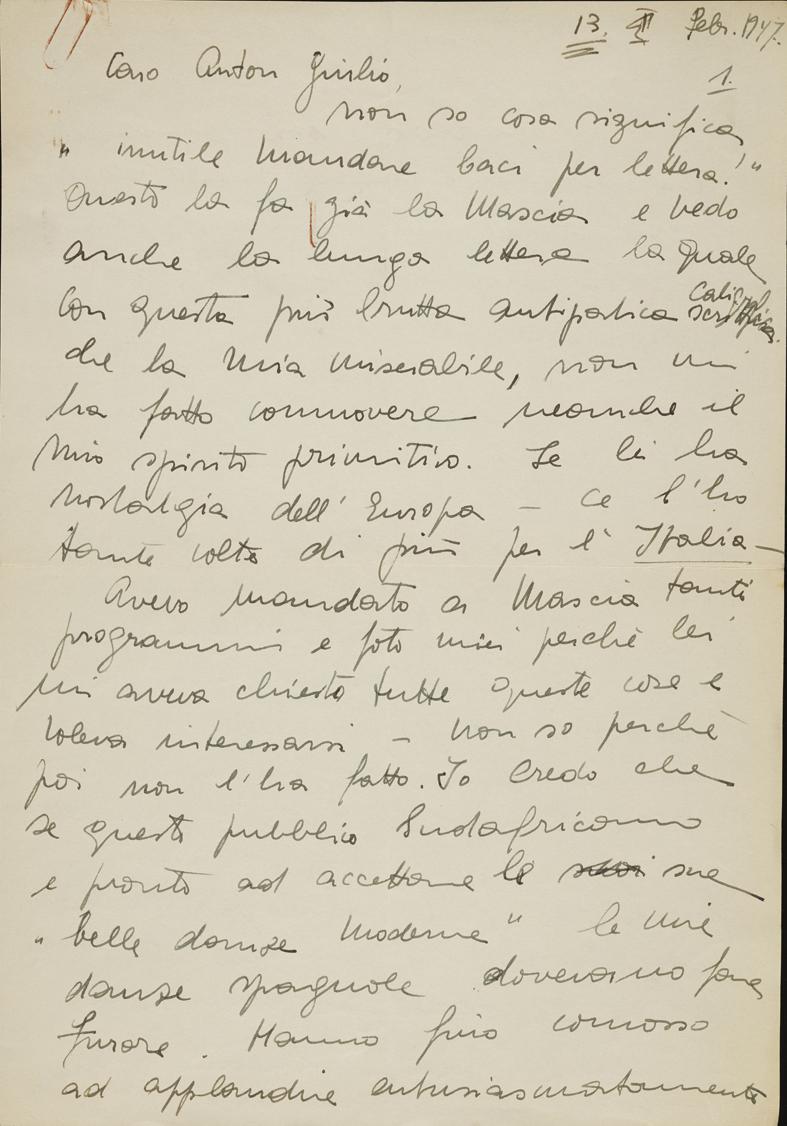 13. II Febr. 1947.
1.
Caro Anton Giulio,
non so cosa significa
" inutile mandare baci per lettera!"
Questo la fa già la Mascia e vedo
anche la lunga lettera la quale
con questa più brutta antipatica caligrafica
che la mia miserabile, non mi
ha fatto commovere neanche il
mio spirito primitivo. Se lei ha
nostalgia dell' Europa – ce l'ho
tante volte di più per l' Italia –
Avevo mandato a Mascia tanti
programmi e foto miei perchè lei
mi aveva chiesto tutte queste cose e
voleva interessarsi – non so perchè
poi non l'ha fatto. Io credo che
se questo pubblico Sudafricano
e pronto ad accettare le sue
" belle danze moderne " le mie
danze spagnole doverano fare
furore. Hanno fino comosso
ad applaudire entusiasmatamente